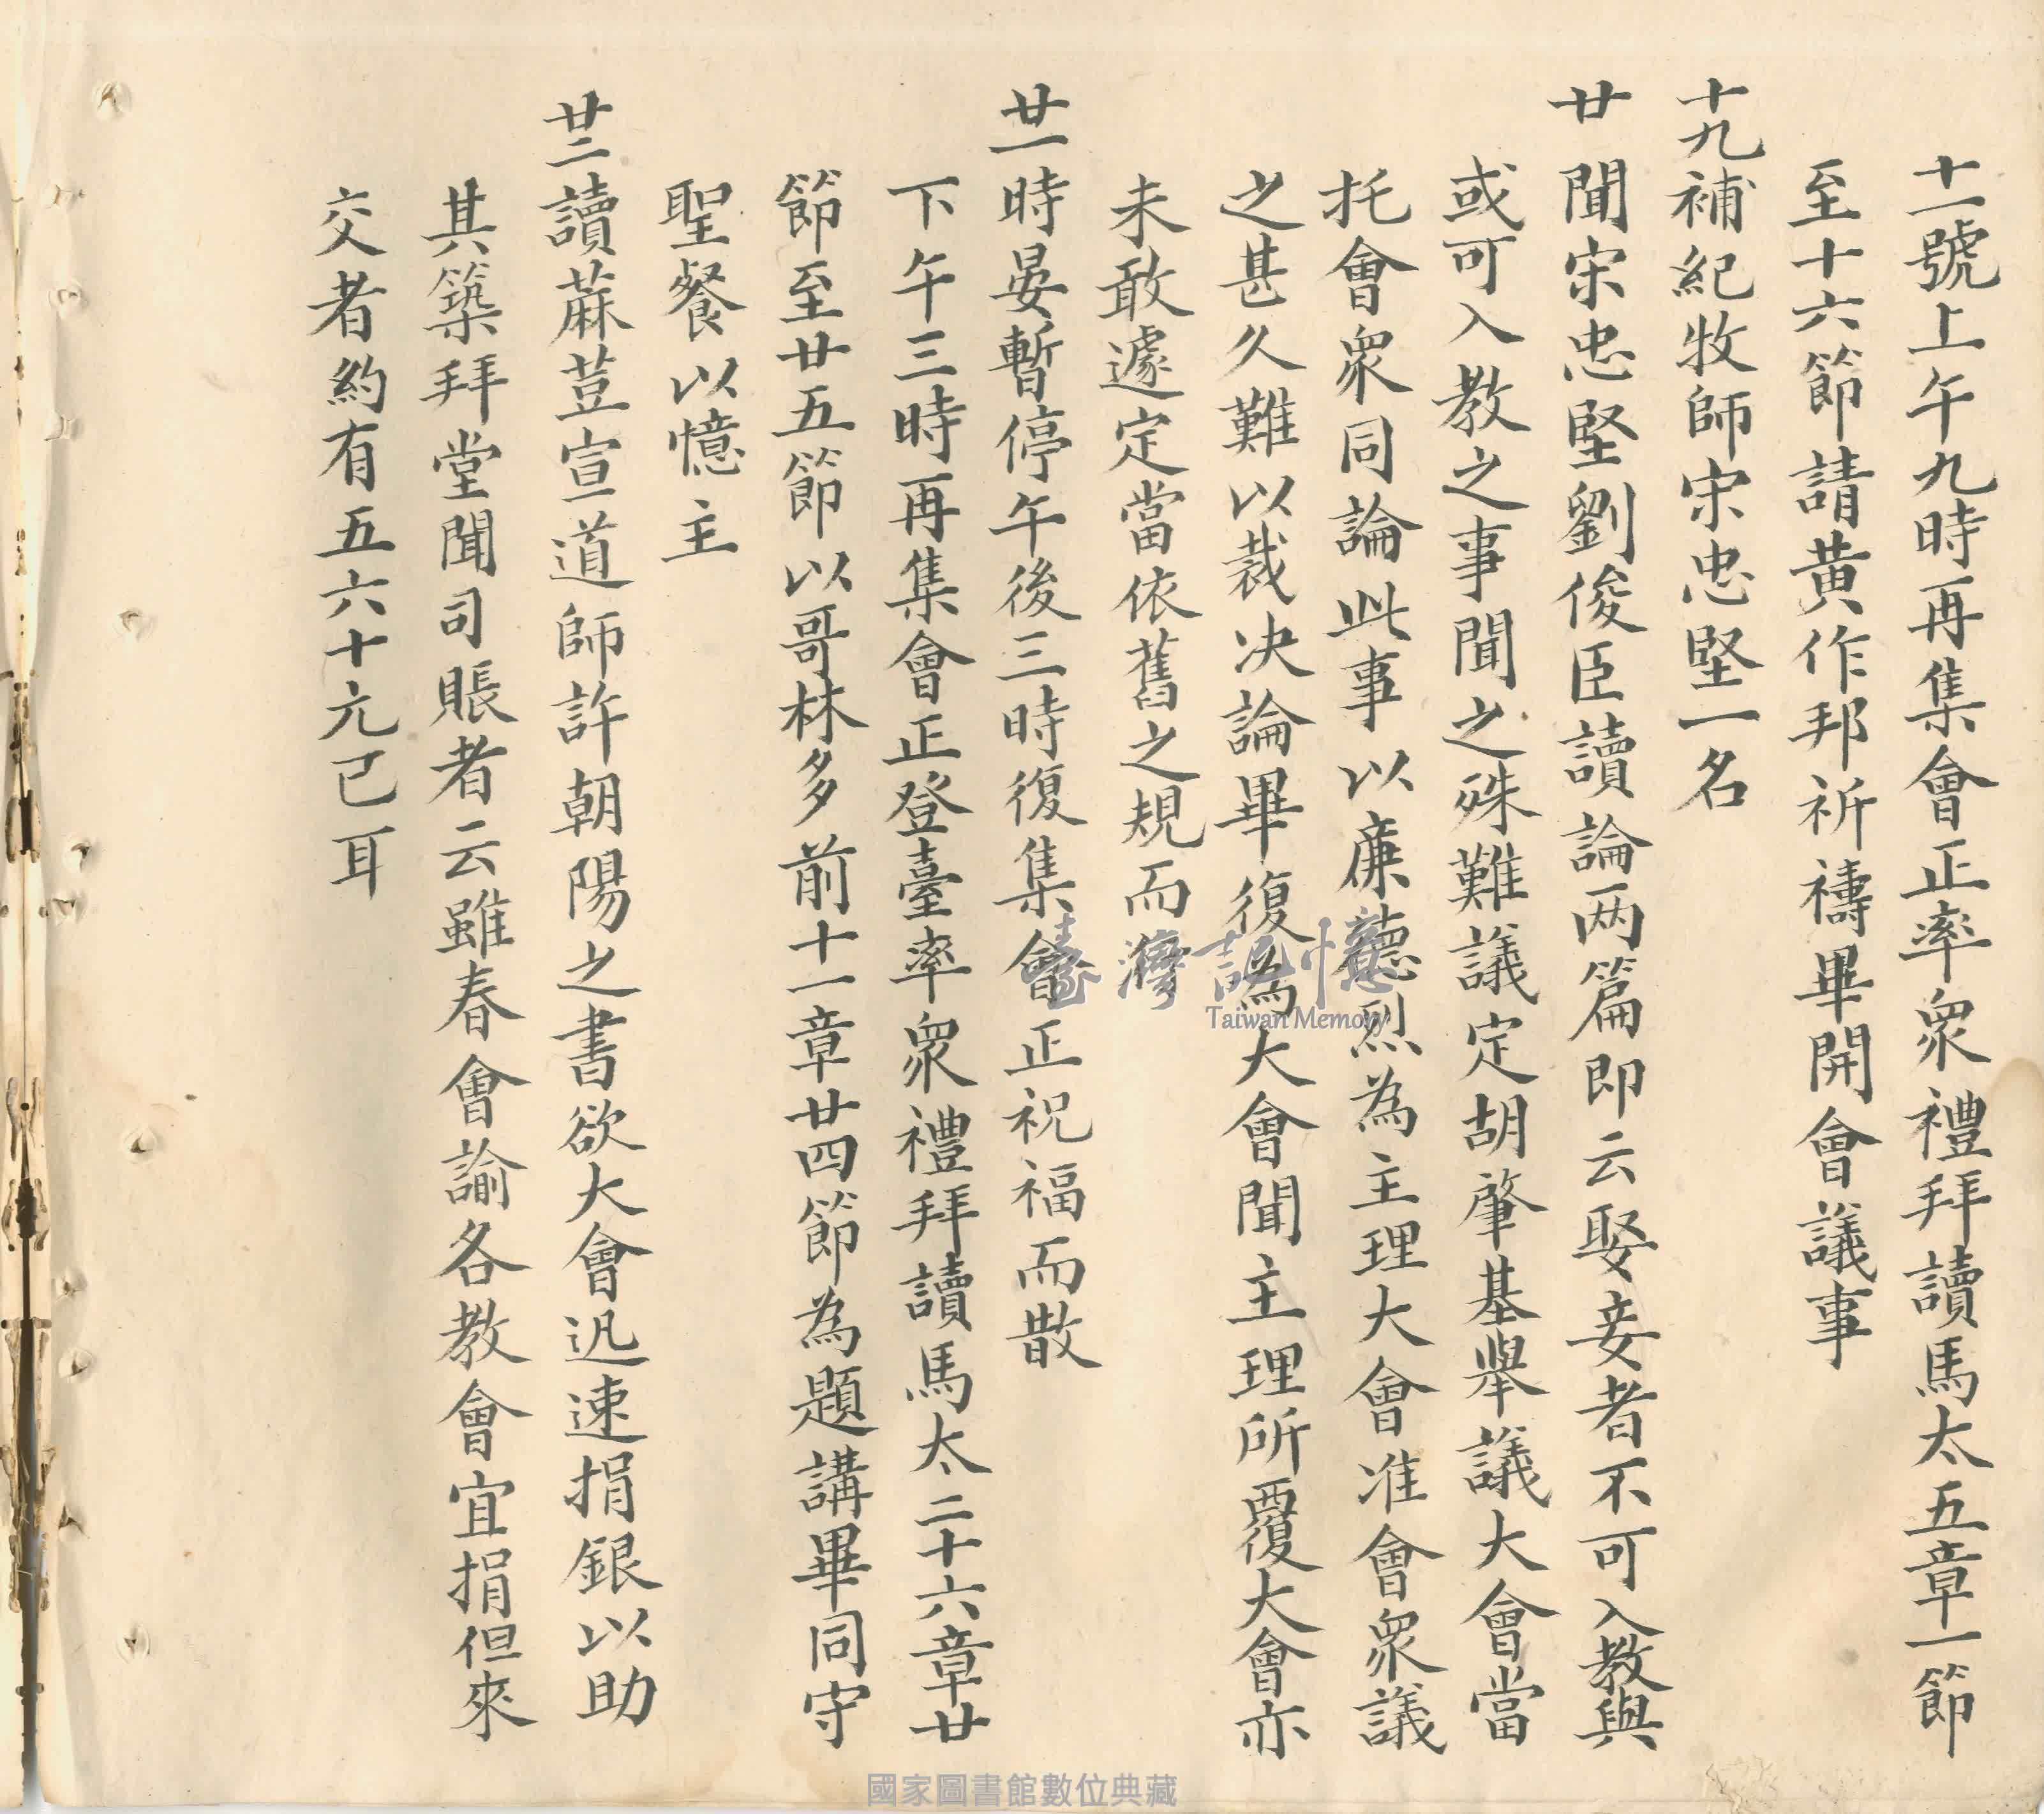 十一號上午九時再集會正率衆禮拜讀馬太五章一節
至十六節請黄作邦祈禱畢開會議事
十九補紀牧師宋忠堅一名
廿聞宋忠堅劉俊臣讀論两篇即云娶妾者不可入教與
或可入教之事聞之殊難議定胡肇基舉議大會當
托會衆同論此事以廉德烈為主理大會准會衆議
之甚久難以裁决論畢復為大會聞主理所覆大會亦
未敢遽定當依舊之規而
廿一時晏暫停午後三時復集會正祝福而散
下午三時再集會正登臺率衆禮拜讀馬太二十六章廿
節至廿五節以哥林多前十一章廿四節為題講畢同守
聖餐以憶主
廿二讀蔴荳宣道師許朝陽之書欲大會迅速捐銀以助
其築拜堂聞司賬者云雖春會諭各教會宜捐但來
交者約有五六十元已耳
臺灣記憶
Taiwan Memory
國家圖書館數位典藏